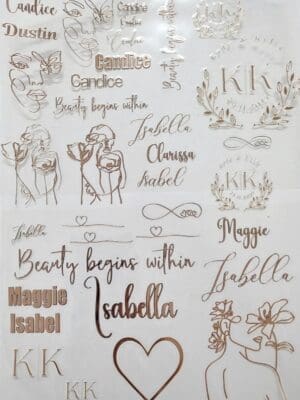 Candice
Dustin
Candice
Candice
Candice
Candice
Candice
Beauty begins within
Beauty begins within
KK
Isabella
Clarissa
Isabel
KK
Isabella
Maggie
Beauty begins within
Isabella
Maggie
Isabel
Isabella
KK
KK